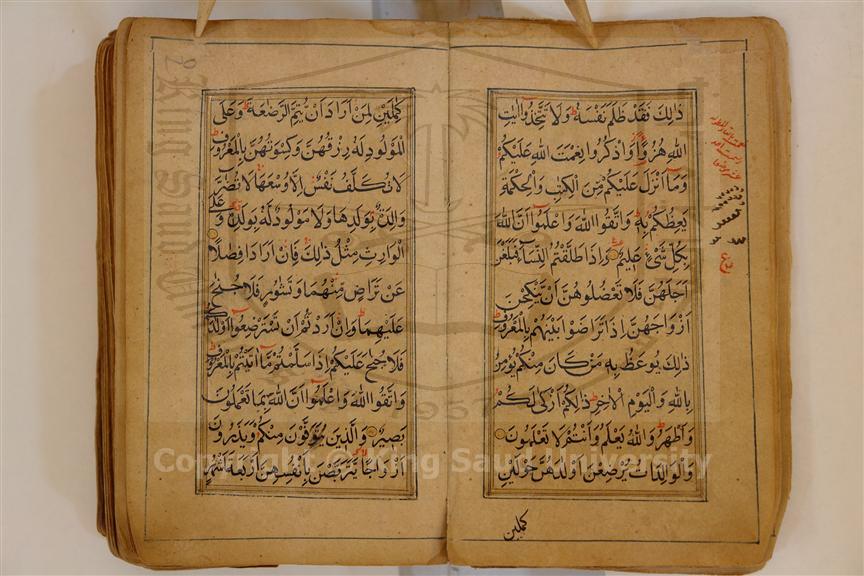 ذٰلِكَ فَقَدْ ظَلَمَ نَفْسَهٗ وَلَا تَتَّخِذُوٓا اٰيٰتِ
اللّٰهِ هُزُوًا وَّاذْكُرُوا نِعْمَتَ اللّٰهِ عَلَيْكُمْ
وَمَآ اَنْزَلَ عَلَيْكُمْ مِّنَ الْكِتٰبِ وَالْحِكْمَةِ
يَعِظُكُمْ بِهٖ وَاتَّقُوا اللّٰهَ وَاعْلَمُوٓا اَنَّ اللّٰهَ
بِكُلِّ شَىْءٍ عَلِيْمٌ وَاِذَا طَلَّقْتُمُ النِّسَآءَ فَبَلَغْنَ
اَجَلَهُنَّ فَلَا تَعْضُلُوْهُنَّ اَنْ يَّنْكِحْنَ
اَزْوَاجَهُنَّ اِذَا تَرَاضَوْا بَيْنَهُمْ بِالْمَعْرُوْفِ
ذٰلِكَ يُوْعَظُ بِهٖ مَنْ كَانَ مِنْكُمْ يُؤْمِنُ
بِاللّٰهِ وَالْيَوْمِ الْاٰخِرِ ذٰلِكُمْ اَزْكٰى لَكُمْ
وَاَطْهَرُ وَاللّٰهُ يَعْلَمُ وَاَنْتُمْ لَا تَعْلَمُوْنَ
وَالْوَالِدَاتُ يُرْضِعْنَ اَوْلَادَهُنَّ حَوْلَيْنِ
كٰمِلَيْنِ
كٰمِلَيْنِ لِمَنْ اَرَادَ اَنْ يُّتِمَّ الرَّضَاعَةَ وَعَلَى
الْمَوْلُوْدِ لَهٗ رِزْقُهُنَّ وَكِسْوَتُهُنَّ بِالْمَعْرُوْفِ
لَا تُكَلَّفُ نَفْسٌ اِلَّا وُسْعَهَا لَا تُضَآرَّ
وَالِدَةٌ بِوَلَدِهَا وَلَا مَوْلُوْدٌ لَّهٗ بِوَلَدِهٖ وَعَلَى
الْوَارِثِ مِثْلُ ذٰلِكَ فَاِنْ اَرَادَا فِصَالًا
عَنْ تَرَاضٍ مِّنْهُمَا وَتَشَاوُرٍ فَلَا جُنَاحَ
عَلَيْهِمَا وَاِنْ اَرَدْتُّمْ اَنْ تَسْتَرْضِعُوٓا اَوْلَادَكُمْ
فَلَا جُنَاحَ عَلَيْكُمْ اِذَا سَلَّمْتُمْ مَّآ اٰتَيْتُمْ بِالْمَعْرُوْفِ
وَاتَّقُوا اللّٰهَ وَاعْلَمُوٓا اَنَّ اللّٰهَ بِمَا تَعْمَلُوْنَ
بَصِيْرٌ وَالَّذِيْنَ يُتَوَفَّوْنَ مِنْكُمْ وَيَذَرُوْنَ
اَزْوَاجًا يَّتَرَبَّصْنَ بِاَنْفُسِهِنَّ اَرْبَعَةَ اَشْهُرٍ
Copyright © King Saud University
1957